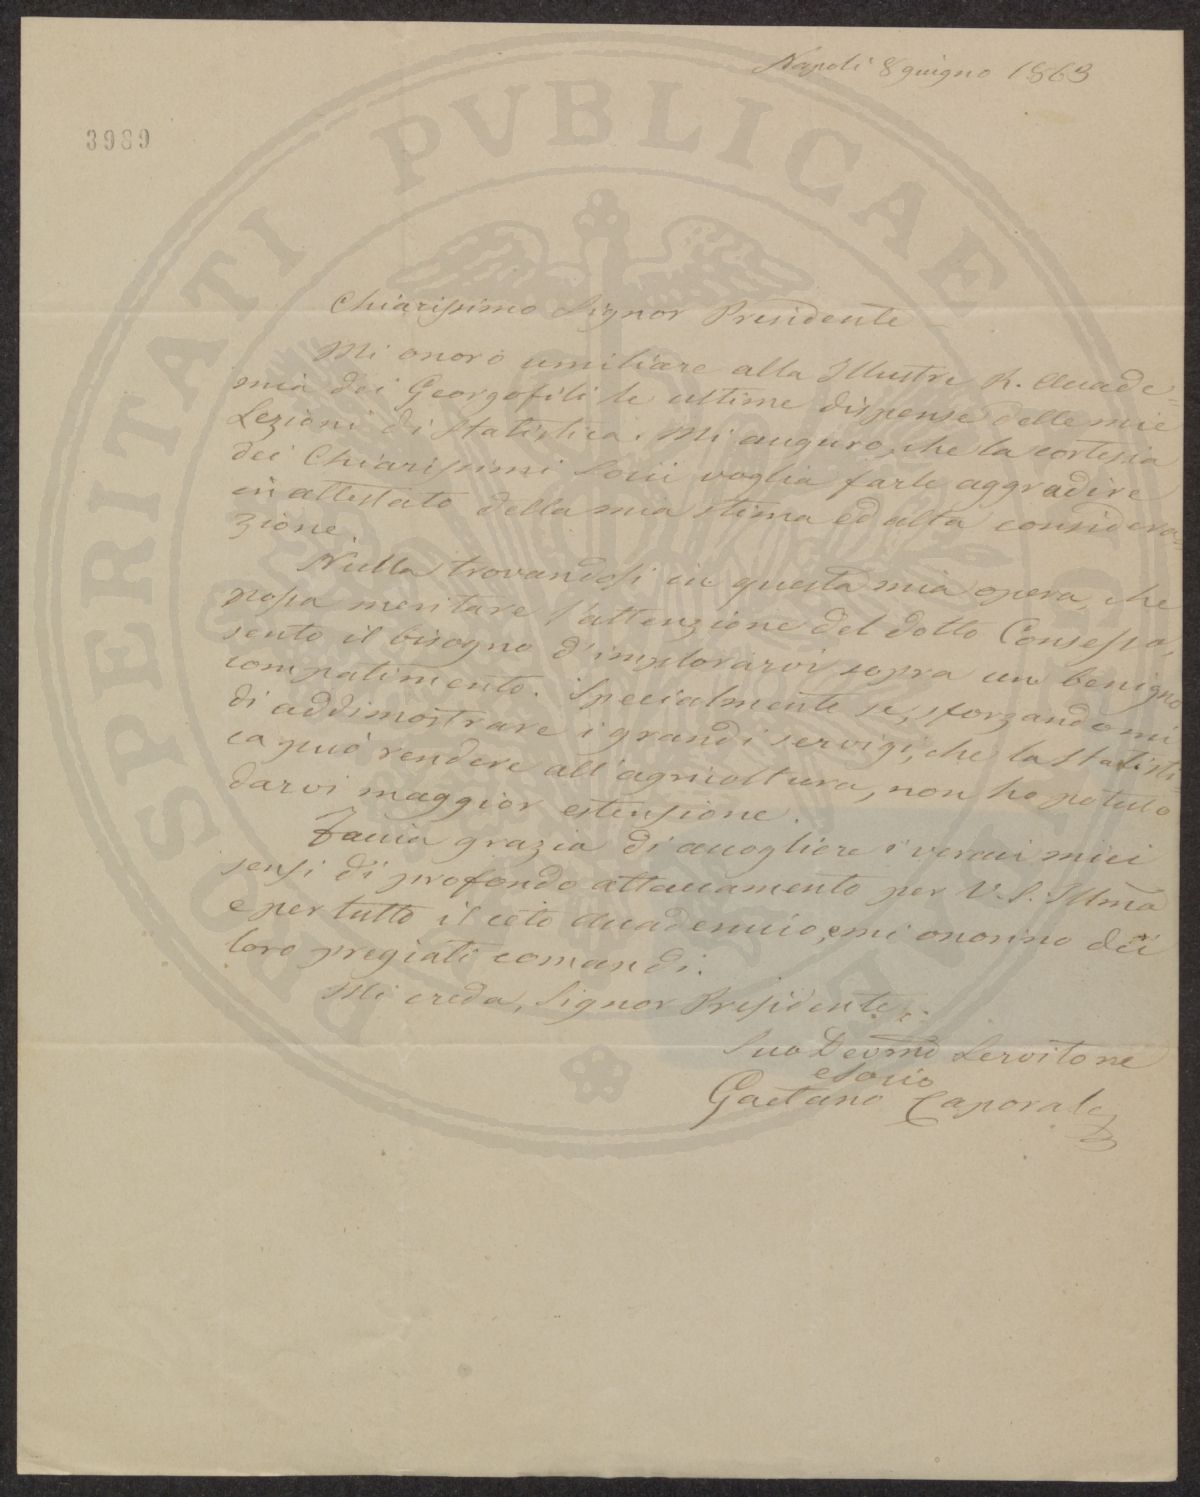 Napoli 8 giugno 1863
3989
PROSPERITATI PVBLICAE
Chiarissimo Signor Presidente
Mi onoro umiliare alla Illustre R. Accade-
mia dei Georgofili le ultime dispense delle mie
Lezioni di Statistica. Mi auguro, che la cortesia
dei Chiarissimi Socii voglia farle aggradire
in attestato della mia stima ed alta considera-
zione.
Nulla trovandosi in questa mia opera, che
possa meritare l'attenzione del dotto Consesso,
sento il bisogno d'implorarvi sopra un benigno
compatimento. Specialmente se, sforzandomi
di addimostrare i grandi servigi, che la Statisti-
ca può rendere all'agricoltura, non ho potuto
darvi maggior estensione.
Faccia grazia di accogliere i veraci miei
sensi di profondo attaccamento per V. S. Illma
e per tutto il ceto Accademico, e mi onorino dei
loro pregiati comandi.
Mi creda, Signor Presidente
Suo Devmo Servitore
e Socio
Gaetano Caporale